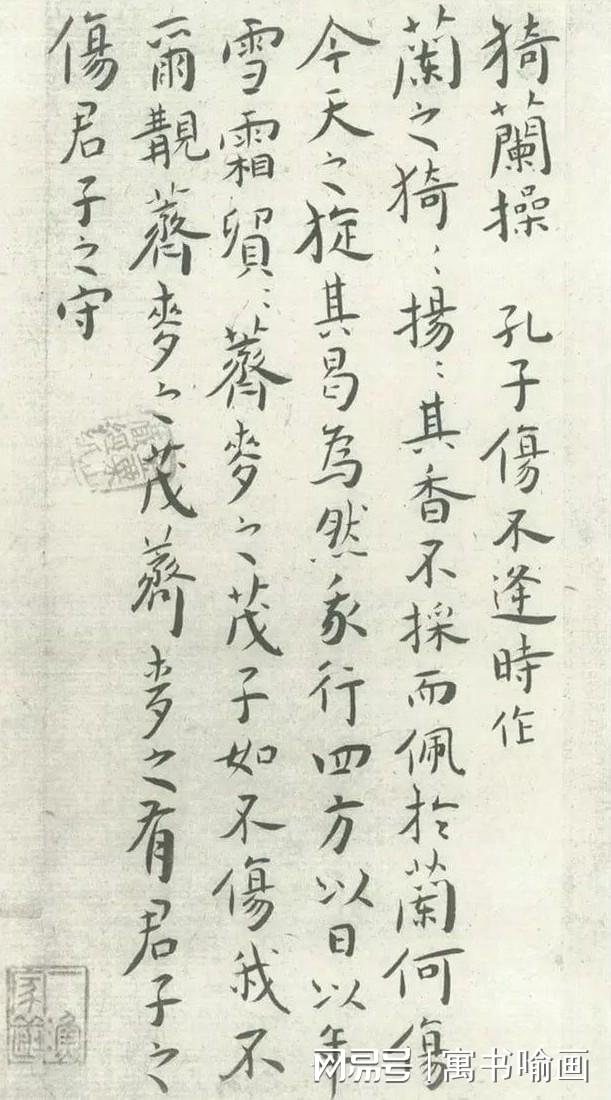 猗蘭操 孔子傷不逢時作
蘭之猗〻揚〻其香不採而佩於蘭何傷
今天之旋其曷為然我行四方以日以年
雪霜貿〻薺麥之茂子如不傷我不
爾覯薺麥之茂薺麥之有君子之
傷君子之守
网易号 | 寓书喻画